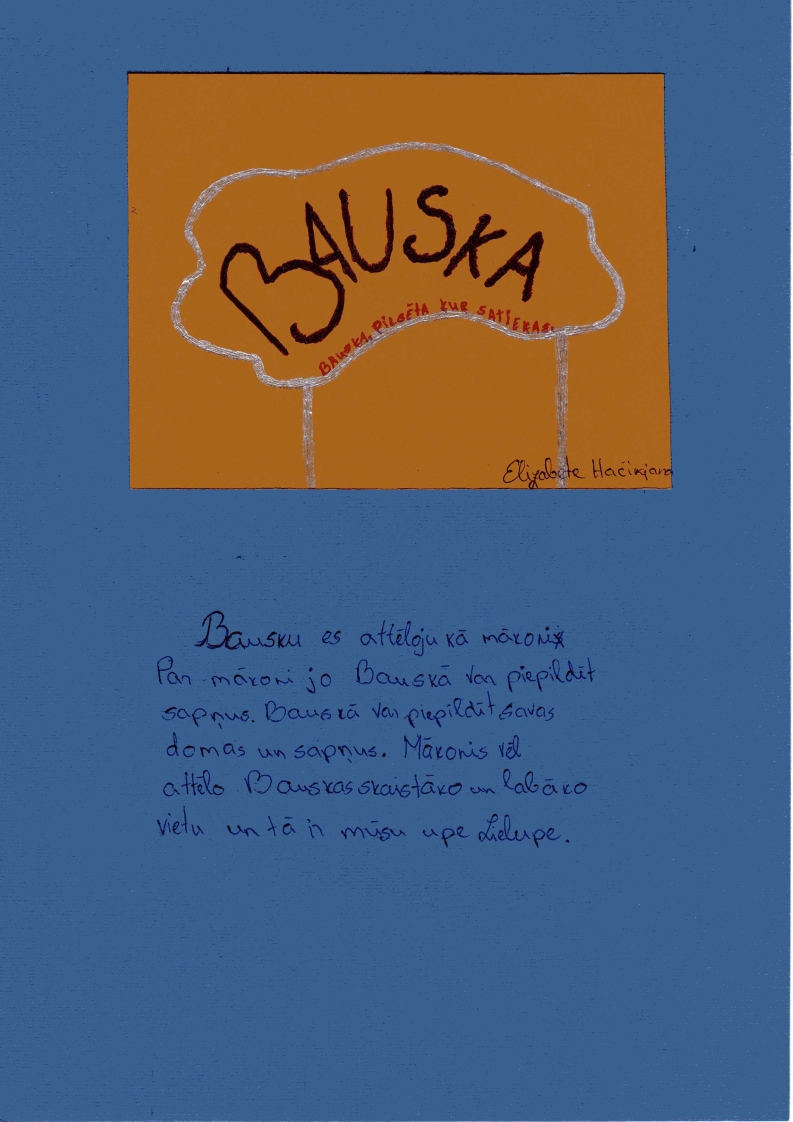 BAUSKA
BAUSKA, PILSĒTA KUR SATIEKAS.
Elizabete
Bausku es attēloju kā mākoni
Par mākoni jo Bauskā var piepildīt
sapņus. Bauskā var piepildīt savas
domas un sapņus. Mākonis vēl
attēlo Bauskas skaistāko un labāko
vietu un tā ir mūsu upe Lielupe.